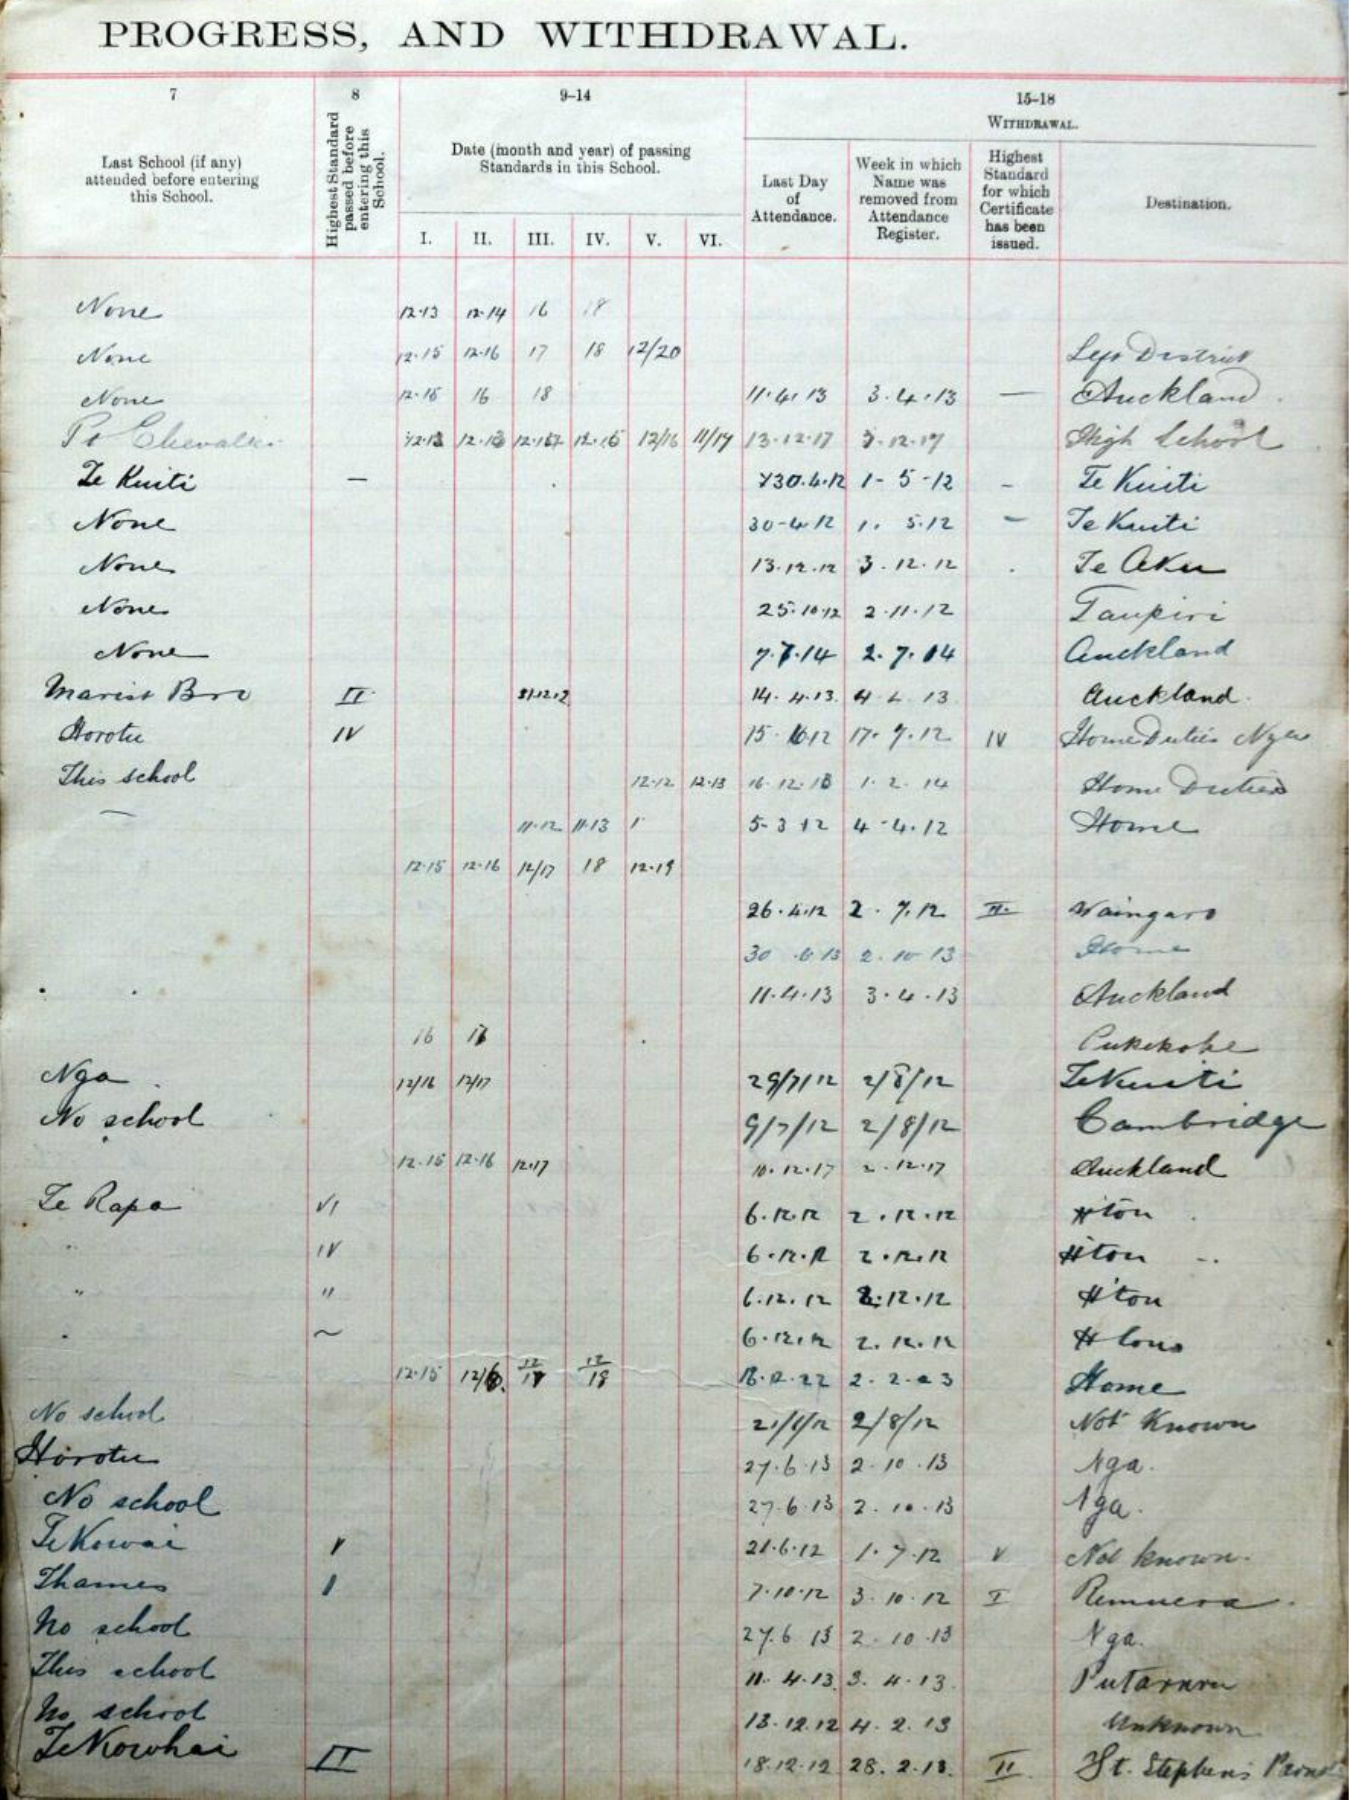 PROGRESS, AND WITHDRAWAL.
7 8 9–14 15–18
WITHDRAWAL.
Last School (if any) attended before entering this School.
Highest Standard passed before entering this School.
Date (month and year) of passing Standards in this School.
I. II. III. IV. V. VI.
Last Day of Attendance.
Week in which Name was removed from Attendance Register.
Highest Standard for which Certificate has been issued.
Destination.
None 12.13 12.14 16 18
None 12.15 12.16 17 18 12/20 District
None 12.15 16 18 11.4.13 3.4.13 — Auckland
Pt Chevalier 12/16 11/17 13.12.17 3.12.17 High School
Te Kuiti — 30.4.12 1-5-12 - Te Kuiti
None 30-4-12 1. 5.12 - Te Kuiti
None 13.12.12 3.12.12 . Te Aku
None 25.10.12 2.11.12 Taupiri
None 7.7.14 2.7.14 Auckland
Marist Bro II 14.4.13 4 13 Auckland.
Horotu IV 15 12 17.7.12 IV Home Duties Nga
This school 12.12 12.13 16.12.13 1.2.14 Home Duties
— 11.12 11.13 5-3 12 4-4.12 Home
12.15 12.16 12/17 18 12.19
26.4.12 2.7.12 II. Waingaro
30 .6 13 2.10 13 Home
11.4.13 3.4.13 Auckland
16 Pukekohe
Nga 12/16 12/17 29/7/12 2/8/12 Te Kuiti
No school 9/7/12 2/8/12 Cambridge
12.15 12.16 12.17 10.12.17 2.12.17 Auckland
Te Rapa VI 6.12.12 2.12.12 Hton
" IV 6.12.12 2.12.12 Hton
" " 6.12.12 2.12.12 Hton
" ~ 6.12.12 2.12.12
12.15 12/18 2.2.23 Home
No school 2/8/12 Not Known
Horotu 27.6.13 2.10.13 Nga.
No school 27.6.13 2.10.13 Nga.
Te Kowai V 21.6.12 1.7.12 V Not known.
Thames I 7.10.12 3.10.12 I Remuera.
No school 27.6 13 2.10.13 Nga.
This school 11.4.13. 3.4.13. Putaruru
No school 13.12.12 4.2.13 Unknown
Te Kowhai II 18.12.12 28.2.13. II. St. Stephens